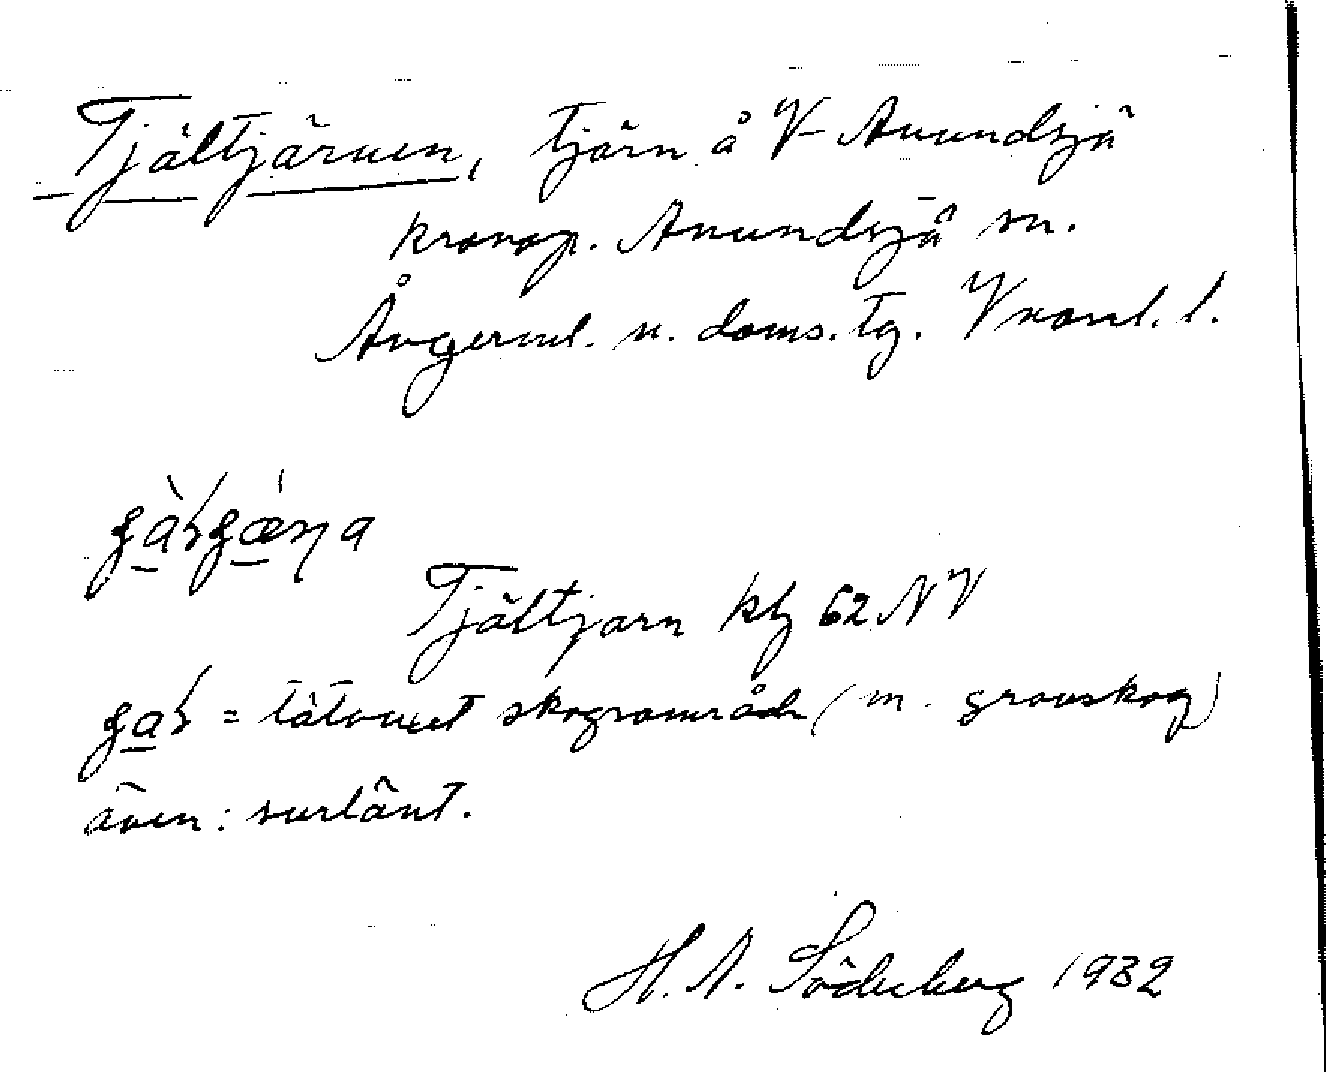 Tjältjärnen, tjärn å V Anundsjö
kronop. Anundsjö sn.
Ångerml. n. doms. tg. Vnorrl. l.
Tjältjärn kb 62 NV
= tätvuxet skogsområde (m. grovskog)
även: surlänt.
H. A. Söderberg 1932